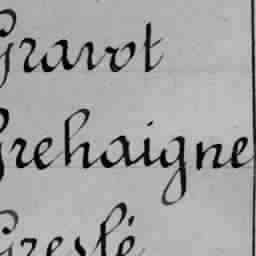 Gravot
Grehaigne
Greslé